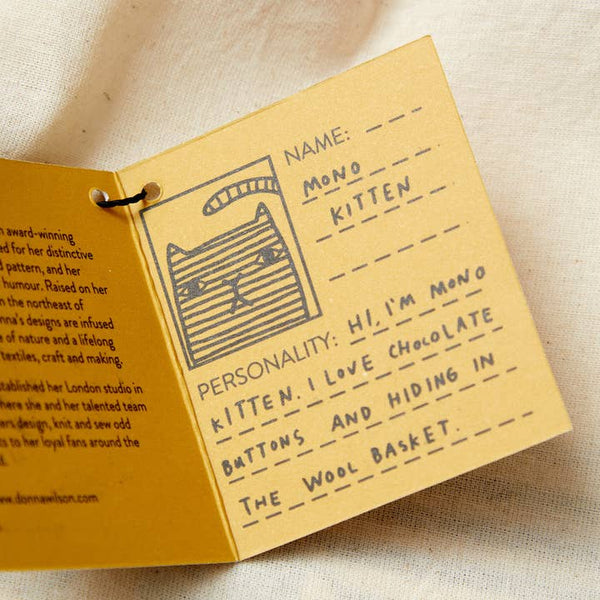 award-winning
for her distinctive
pattern, and her
humour. Raised on her
the northeast of
designs are infused
of nature and a lifelong
textiles, craft and making.
her London studio in
where she and her talented team
design, knit and sew odd
to her loyal fans around the
www.donnawilson.com
NAME:
MONO
KITTEN
PERSONALITY: HI, I'M MONO
KITTEN. I LOVE CHOCOLATE
BUTTONS AND HIDING IN
THE WOOL BASKET.